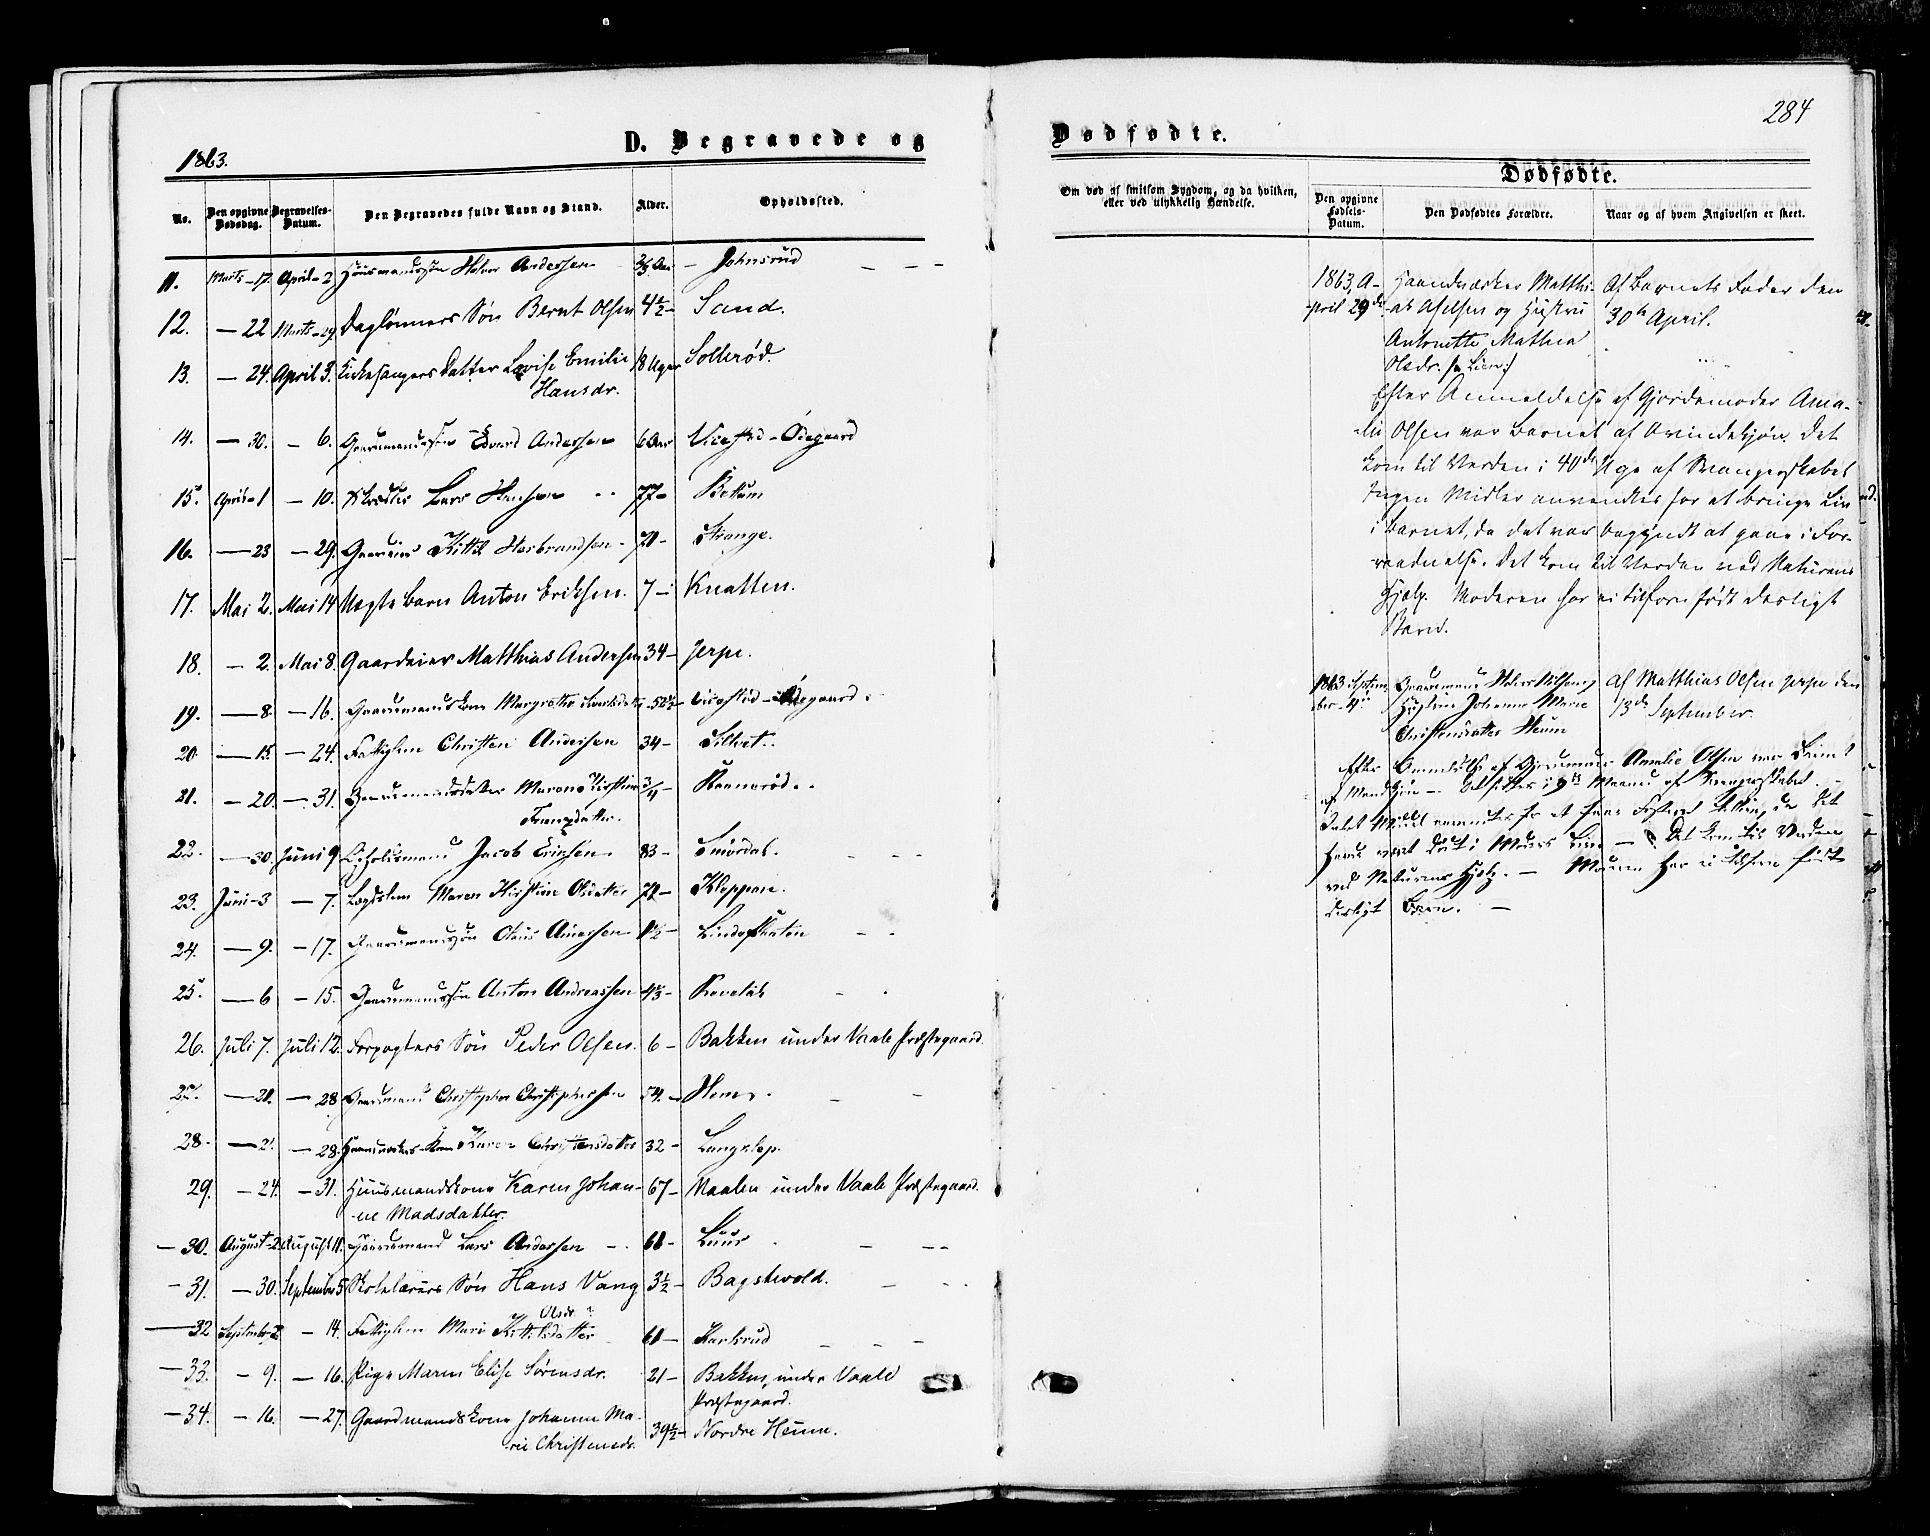 284
1863.
D. Begravede og
Dødfødte.
No.
Den opgivne Dødsdag.
Begravelses-Datum.
Den Begravedes fulde Navn og Stand.
Alder.
Opholdssted.
Om død af smitsom Sygdom, og da hvilken, eller ved ulykkelig Hændelse.
Dødfødte.
Den opgivne Fødsels-Datum.
Den Dødfødtes Forældre.
Naar og af hvem Angivelsen er skeet.
11. Marts – 17. April – 2 Huusmandssøn Halvor Andersen Aar – Johnsrud
12. – 22 Marts – 29. Daglønners Søn Bernt Olsen 4½ – Sand.
13. – 24. April 3. Kirkesangers Datter Lovise Emilie 18 Uger Solerød.
Hansdr.
14. – 30. – 6. Gaardmandssøn Edvard Andersen 6 Aar Viestad – Ødegaard
15. April – 1 – 10. Lars Hansen 77 – Bettum
16. – 23 – 29. Kittil Herbrandsen – 70 – Strange.
17. Mai 2. Mai 14 Uægte Barn Anton Eriksen. 7 – Knatten.
18. – 2. Mai 8. Gaardeier Matthias Andersen 34 – Jerpe.
19. – 8 – 16. Gaardmandskone Margrethe – 52½ – Ødegaard.
20. – 15. – 24. Fattiglem Christen Andersen 34 –
21. – 20. – 31. Gaardmandsdatter Maren Kirstine 3/4 – Ravnerød.
Franzdatter.
22. – 30. Juni 9. Jacob Eriksen. 83 – Smørdal.
23. Juni – 3 – 7. Lægdslem Maren Kirstine Olsdatter 70 – Kleppan.
24. – 9. – 17. Gaardmandssøn Olaus Andersen 1½ –
25. – 6 – 15. Gaardmandssøn Anton Andreassen – Revetal
26. Juli 7. Juli 12. Forpagters Søn Peder Olsen. 6 – Bakken under Vaale Præstegaard.
27. – 20. – 28 Gaardmand Christopher Christophersen 54. – Hem.
28. – 21 – 28. Haandværkers Kone Karen Christensdatter 32 – Langelop.
29. – 24. – 31. Huusmandskone Karen Johan- 67 – Maalen under Vaale Præstegaard.
-ne Madsdatter.
– 30. August – 2 August 11. Gaardmand Lars Andersen – 61 – Luur
– 31. – 30. September 5 Skolelærers Søn Hans Vang 3½ – Bagstevold.
Olsdr ?
– 32 September 2 – 14. Fattiglem Mari Kittilsdatter 61 – Karlsrud
– 33. – 9. – 16. Pige Maren Elise Sørensdr. 21 – Bakken under Vaale
Præstegaard.
– 34. – 16. – 27. Gaardmandskone Johanne Ma- 39½ – Nordre Heum.
-rie Christensdr.
1863, A- Haandværker Matthi- Af Barnets Fader den
-pril 29de -as Axelsen og Hustru 30te April.
Antonette Mathea
Olsdr. /: Lien :/
Efter Anmeldelse af Gjordemoder Ama-
-lie Olsen var Barnet af Qvindekjøn. Det
kom til Verden i 40de Uge af Svangerskabet
Ingen Midler anvendtes for at bringe Liv
i Barnet, da det var begyndt at gaae i For-
-raadnelse. Det kom til Verden ved Naturens
Hjælp. Moderen har ei tilforn født desligt
Barn.
1863 Septem- Gaardmand Halvor Nilsen og Af Matthias Olsen Jerpe den
ber 4de Hustru Johanne Marie 13de September.
Christensdatter Heum
Efter Anmeldelse af Gjordemoder Amalie Olsen var Barnet
af Mandkjøn – i 9de Maaned af Svangerskabet. –
Intet Middel anvendtes for at faae Fosteret , da det
havde været dødt i Moders Liv – Det kom til Verden
ved Naturens Hjælp. – Moderen har ei tilforn født
desligt Barn. –